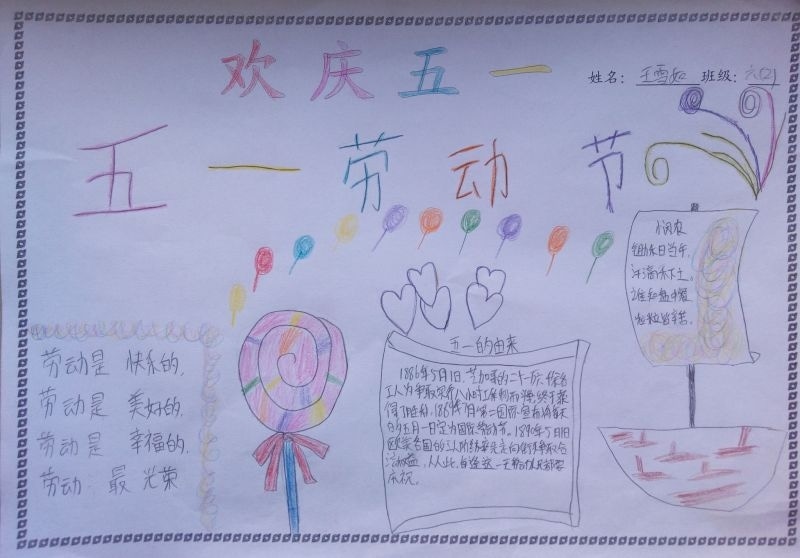 欢庆五一
姓名：王雪如 班级：六(2)
五一劳动节
悯农
锄禾日当午，
汗滴禾下土。
谁知盘中餐
粒粒皆辛苦。
五一的由来
1886年5月1日，芝加哥的二十一万
工人为争取实行八小时工作制而
得了胜利，1889年7月第二国际宣布将每年
的五月一日定为国际劳动节。1890年5月1日
欧美各国的工人阶级率先走向街头争取合
法权益，从此，每逢这一天
庆祝。
劳动是 快乐的，
劳动是 美好的，
劳动是 幸福的，
劳动 最 光荣